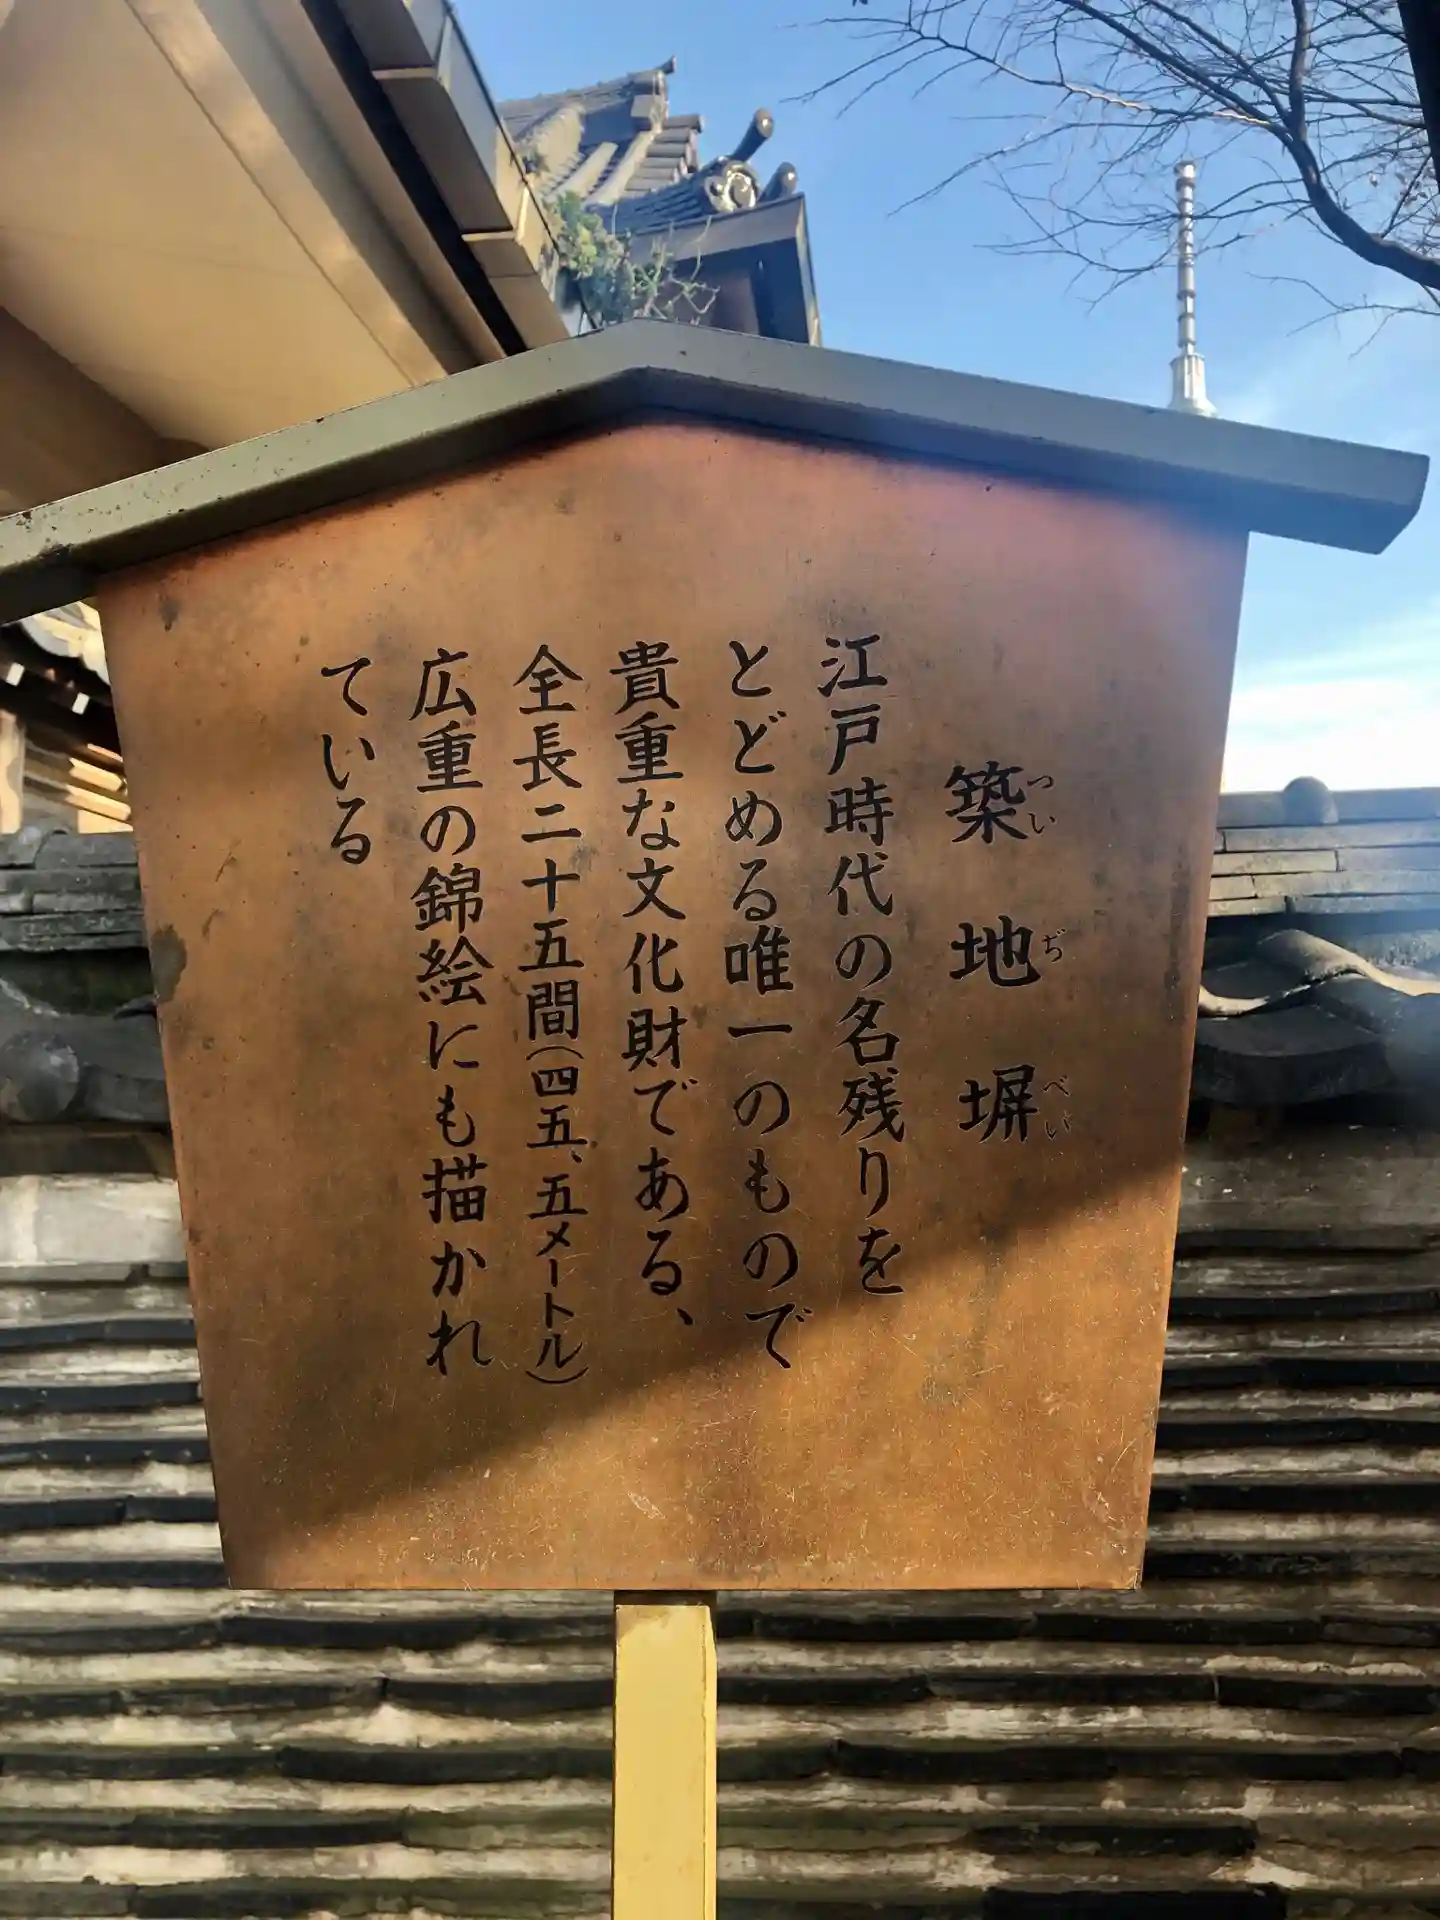 築地塀
つい ぢ べい
江戸時代の名残りを
とどめる唯一のもので
貴重な文化財である、
全長二十五間(四五、五メートル)
広重の錦絵にも描かれ
ている